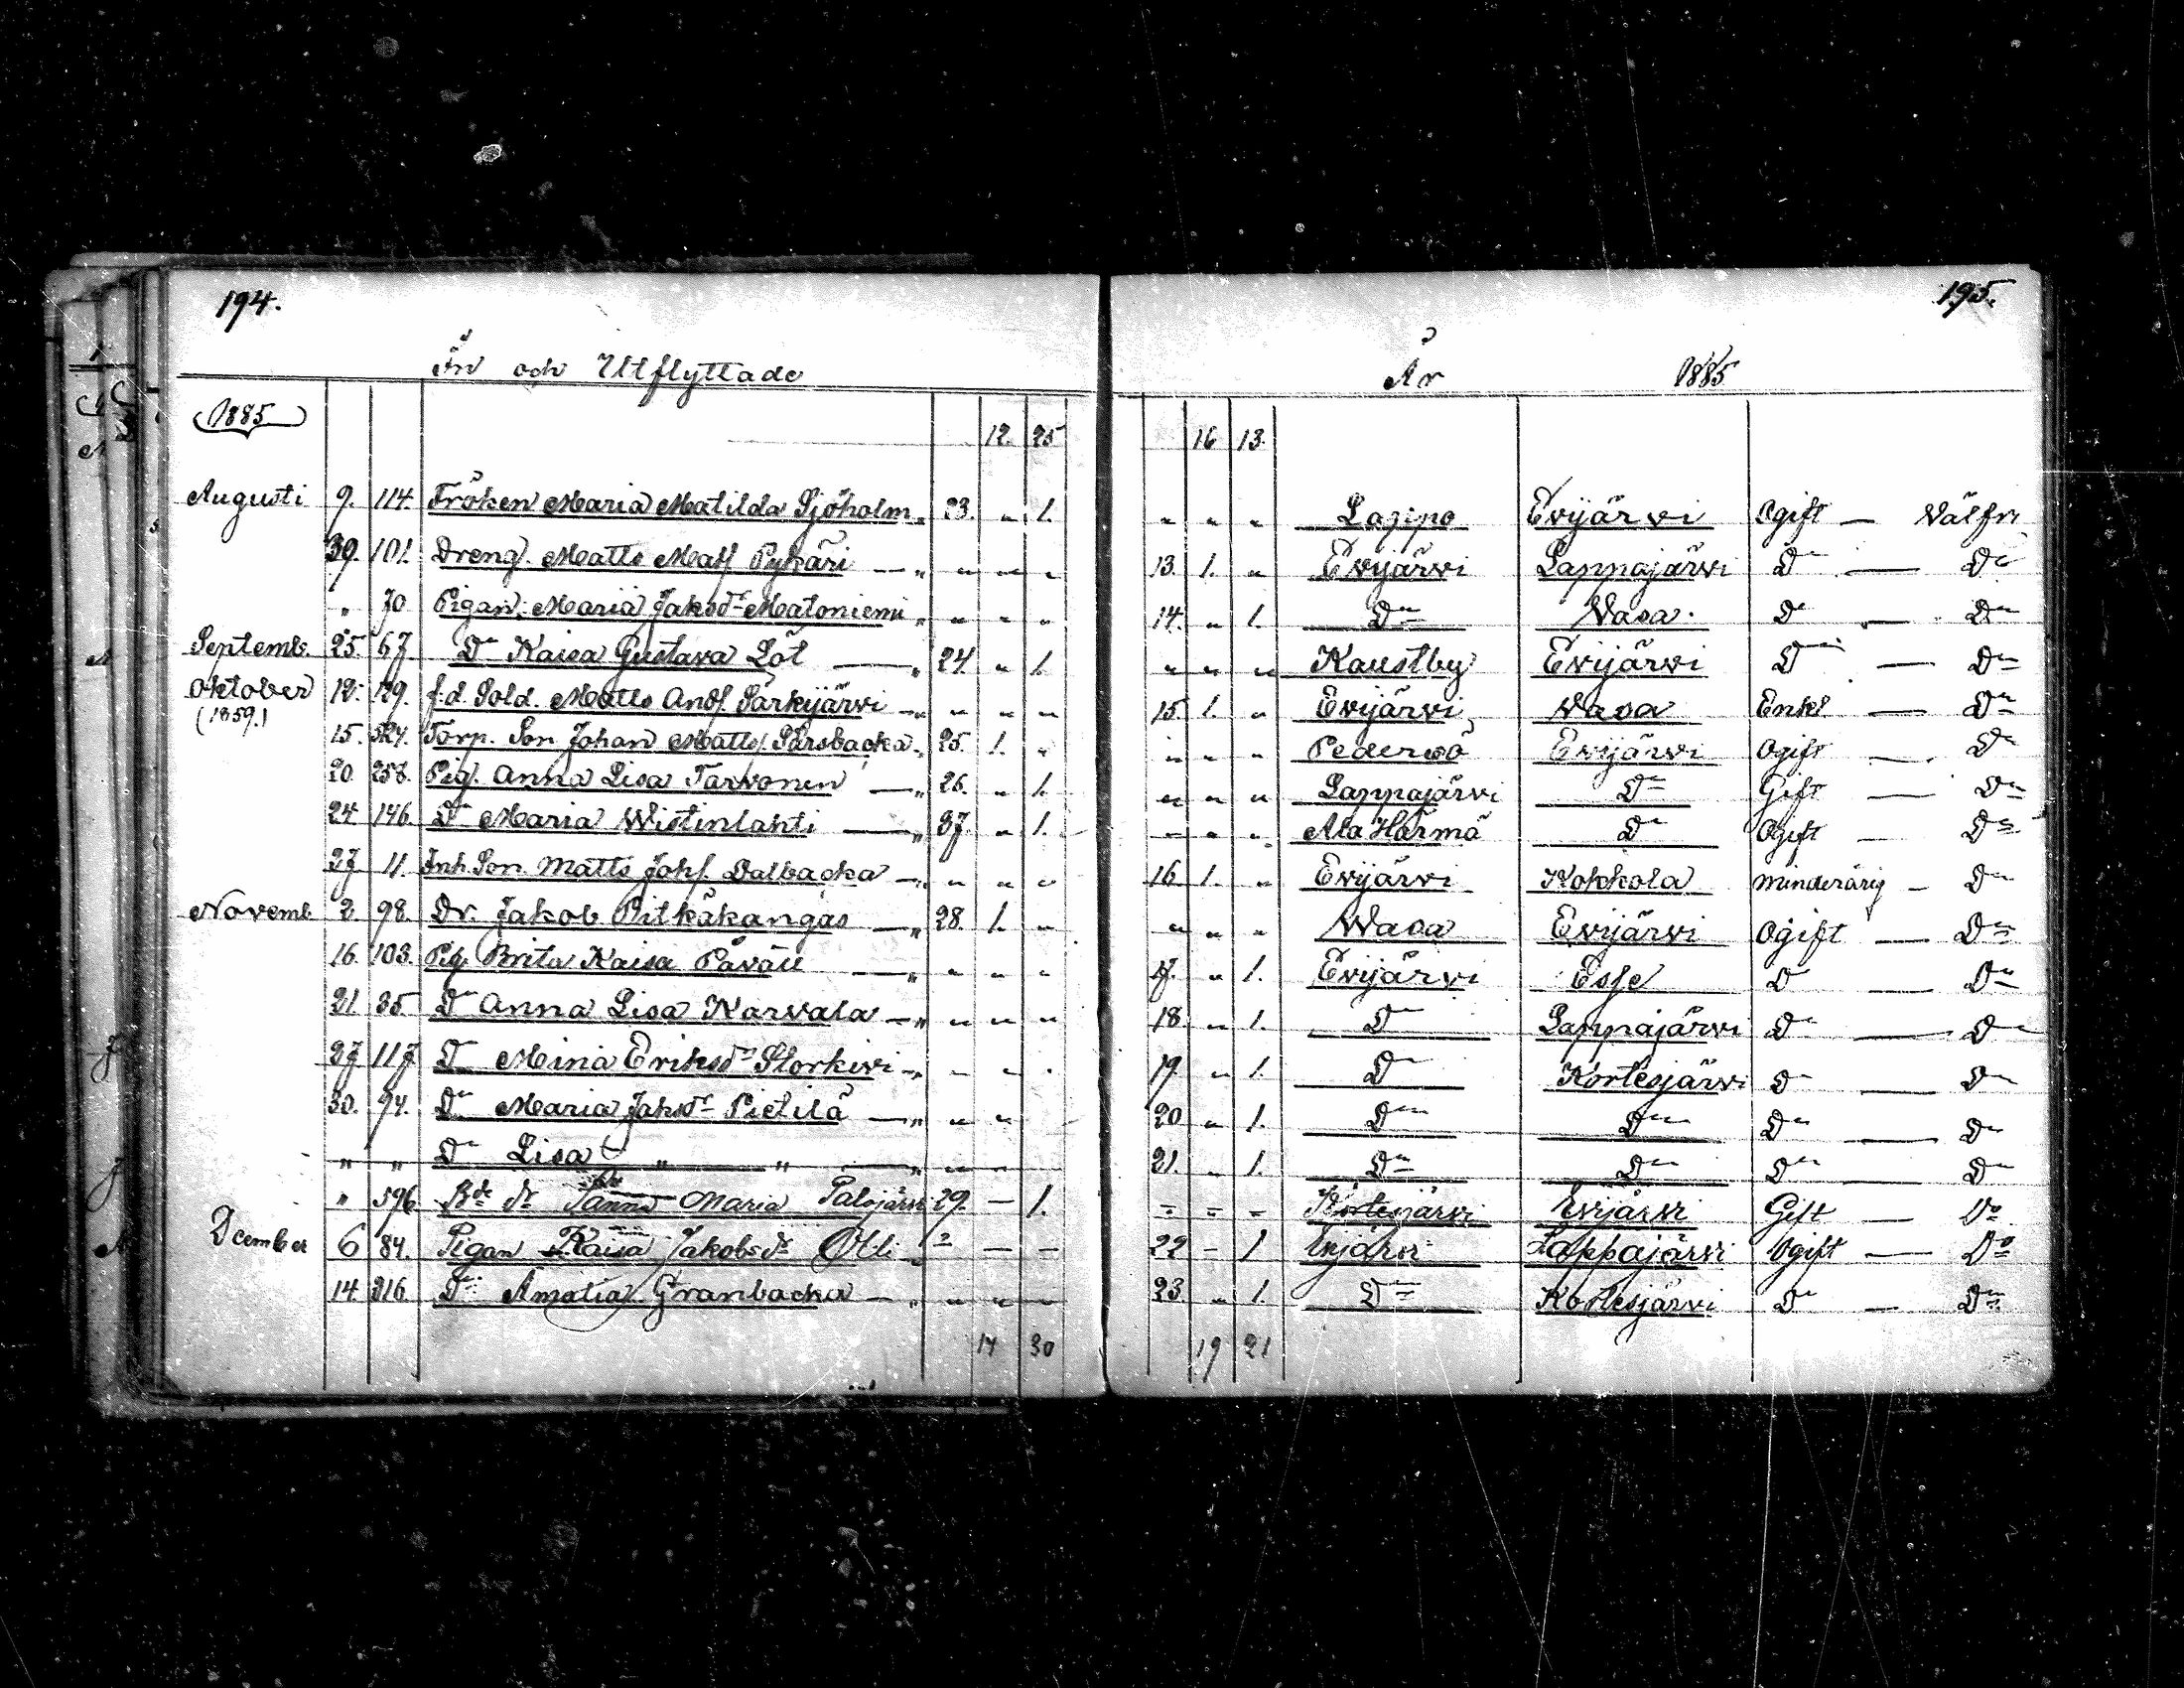 194.
In och Utflyttade
1885
12. 25
Augusti 9. 114. Fröken Maria Matilda Sjöholm „ 23. „ 1.
30. 101. Dreng. Matts Matts. Pykäri — „ „ „ „
„ 70 Pigan. Maria Jakobsdr Matoniemi „ „ „ „
Septemb. 25. 67. Do Kaisa Gustava Löt — „ 24 „ 1.
Oktober 12. 129. f.d. Sold. Matts Ands. Särkijärvi — „ „ „ „
(1859.)
15. 524. Torp. Son Johan Matts. Pärsbacka „ 25. 1. „
20. 258. Pig. Anna Lisa Tarvonen — „ 26. „ 1.
24 146. Do Maria Wistinlahti — „ 27. „ 1.
27 11. Inh. Son Matts Joh. Dalbacka — „ „ „ „
Novemb. 2 98. Dr. Jakob Pitkäkangas — „ 28. 1. „
16. 103. Pig. Brita Kaisa — „ „ „ „
21 35 Do Anna Lisa Karvala — „ „ „ „
27 117 Do Mina Eriksdr Storkivi — „ „ „ „
30. 94. Do Maria Jakobsdr Pietilä — „ „ „
„ „ Do Lisa „ „ — „ „ „
„ 596 Sanna Maria Palojärvi 29. — 1.
December 6 84. Pigan Kaisa Jakobsdr Olli „ — —
14. 216. Do Amalia Granbacka — „ „ „ „
14 30
195.
År 1885
16 13.
„ „ „ Lappo Evijärvi Ogift — Välfri
13. 1. „ Evijärvi Lappajärvi Do — Do
14. „ 1. Do Wasa. Do — Do
„ „ „ Kaustby Evijärvi Do — Do
15. 1. „ Evijärvi Wasa Enkl — Do
„ „ „ Pedersö Evijärvi Ogift — Do
„ „ „ Lappajärvi Do Gift — Do
„ „ „ Ala Härmä Do Ogift — Do
16 1. „ Evijärvi Kokkola Minderårig — Do
„ „ „ Wasa Evijärvi Ogift — Do
17. „ 1. Evijärvi Esse Do — Do
18. „ 1. Do Lappajärvi Do — Do
19 „ 1. Do Kortesjärvi Do — Do
20 „ 1. Do Do Do — Do
21. „ 1. Do Do Do Do
„ „ „ Kortesjärvi Evijärvi Gift — Do
22 — 1 Evijärvi Lappajärvi Ogift — Do
23. „ 1. Do Kortesjärvi Do — Do
19 21